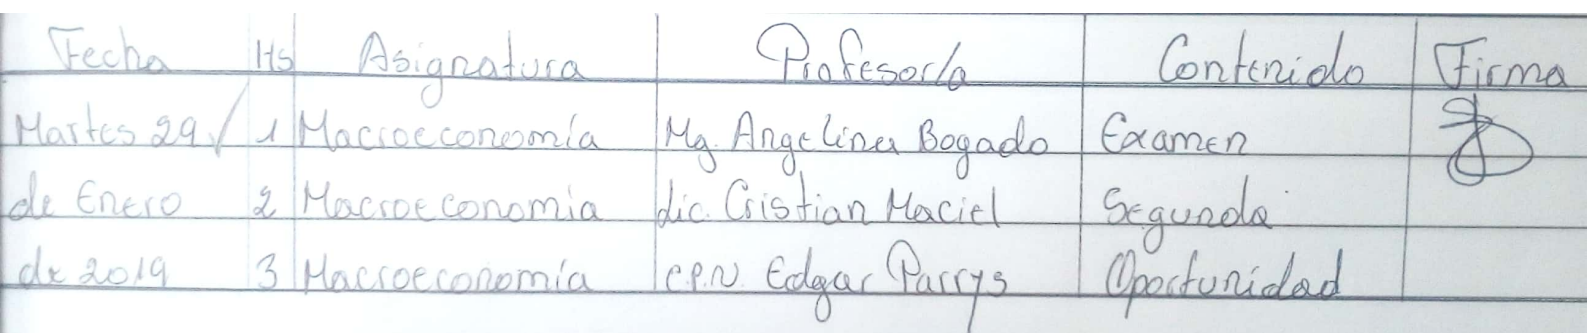 Fecha Hs Asignatura Profesor/a Contenido Firma
Martes 29/ 1 Macroeconomía Mg. Angelina Bogado Examen
de Enero 2 Macroeconomia Lic. Cristian Maciel Segunda
de 2019 3 Macroeconomía C.P.N. Edgar Parrys Oportunidad